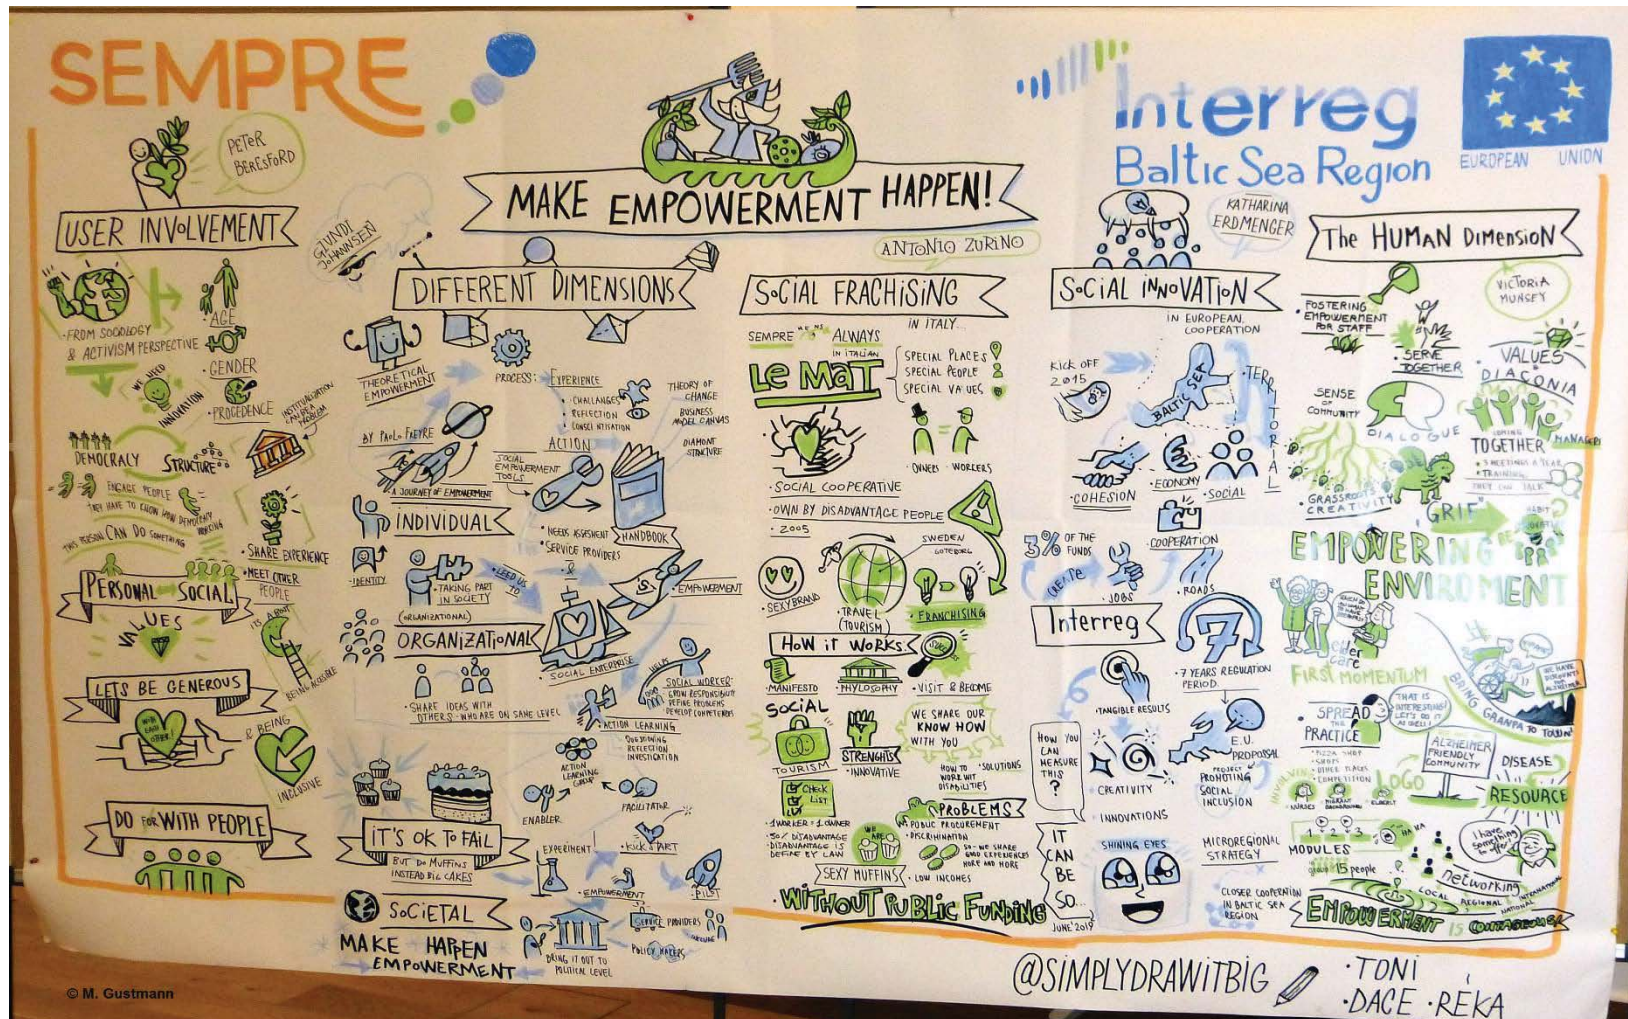 SEMPRE
Interreg
Baltic Sea Region
EUROPEAN UNION
MAKE EMPOWERMENT HAPPEN!
PETER
BERESFORD
USER INVOLVEMENT
• FROM SOCIOLOGY
& ACTIVISM PERSPECTIVE
• AGE
• GENDER
• PROCEDENCE
WE NEED
INNOVATION
DEMOCRACY
STRUCTURE
ENGAGE PEOPLE
THEY HAVE TO KNOW HOW DEMOCRACY
WORKING
THIS PERSON CAN DO SOMETHING
• SHARE EXPERIENCE
• MEET OTHER
PEOPLE
PERSONAL SOCIAL
VALUES
LETS BE GENEROUS
WITH
EACH
OTHER!
& BEING
INCLUSIVE
DO FOR WITH PEOPLE
GUNDI
JOHANNSEN
DIFFERENT DIMENSIONS
THEORETICAL
EMPOWERMENT
PROCESS:
EXPERIENCE
• CHALLANGES
• REFLECTION
THEORY OF
CHANGE
BUSINESS
MODEL CANVAS
DIAMONT
STRUCTURE
BY PAOLO FREYRE
ACTION
SOCIAL
EMPOWERMENT
TOOLS
A JOURNEY OF EMPOWERMENT
INDIVIDUAL
HANDBOOK
• NEEDS ASSESMENT
• SERVICE PROVIDERS
&
• IDENTITY
• TAKING PART
IN SOCIETY
• LEED US
TO
• EMPOWERMENT
(ORGANIZATIONAL)
ORGANIZATIONAL
• SOCIAL ENTERPRISE
HELP
SOCIAL WORKER:
• GROW RESPONSIBILITY
DEFINE PROBLEMS
DEVELOP COMPETENCES
• SHARE IDEAS WITH
OTHERS - WHO ARE ON SAME LEVEL
• ACTION LEARNING
QUESTIONING
REFLECTION
INVESTIGATION
ACTION
LEARNING
GROUP
ENABLER
FACILITATOR
IT'S OK TO FAIL
BUT DO MUFFINS
INSTEAD BIG CAKES
EXPERIMENT
• KICK START
• EMPOWERMENT
• PILOT
SOCIETAL
MAKE HAPPEN
EMPOWERMENT
BRING IT OUT TO
POLITICAL LEVEL
SERVICE PROVIDERS
POLICY MAKERS
ANTONIO ZURINO
SOCIAL FRACHISING
IN ITALY...
SEMPRE MEANS ALWAYS
IN ITALIAN
Le MaT
SPECIAL PLACES
SPECIAL PEOPLE
SPECIAL VALUES
• OWNERS • WORKERS
• SOCIAL COOPERATIVE
• OWN BY DISADVANTAGE PEOPLE
• 2005
SWEDEN
GOTEBORG
• SEXY BRAND
• TRAVEL
(TOURISM)
• FRANCHISING
HOW IT WORKS
• MANIFESTO
• PHYLOSOPHY
• VISIT & BECOME
SOCIAL
TOURISM
STRENGHTS
• INNOVATIVE
WE SHARE OUR
KNOW HOW
WITH YOU
HOW TO
WORK WIT
DISABILITIES
• SOLUTIONS
CHECK
LIST
• 1 WORKER = 1 OWNER
• 50% DISADVANTAGE
• DISADVANTAGE IS
DEFINE BY LAW
WE
ARE
SEXY MUFFINS
PROBLEMS
• PUBLIC PROCUREMENT
• DISCRIMINATION
• LOW INCOMES
SO - WE SHARE
GOOD EXPERIENCES
MORE AND MORE
• WITHOUT PUBLIC FUNDING
KATHARINA
ERDMENGER
SOCIAL INNOVATION
IN EUROPEAN
COOPERATION
KICK OFF
2015
BALTIC SEA
• TERRITORIAL
• COHESION
• ECONOMY
• SOCIAL
• COOPERATION
3% OF THE
FUNDS
CREATE
• JOBS
• ROADS
Interreg
7
• 7 YEARS REGULATION
PERIOD
• TANGIBLE RESULTS
HOW YOU
CAN
MEASURE
THIS
?
• CREATIVITY
• INNOVATIONS
E.U.
PROPOSAL
PROJECT
PROMOTING
SOCIAL
INCLUSION
IT
CAN
BE
SO...
JUNE 2019
SHINING EYES
MICROREGIONAL
STRATEGY
CLOSER COOPERATION
IN BALTIC SEA
REGION
The HUMAN DIMENSION
VICTORIA
MUNSEY
FOSTERING
EMPOWERMENT
FOR STAFF
• SERVE
TOGETHER
• VALUES
• DIACONIA
SENSE
OF
COMMUNITY
DIALOGUE
COMING
TOGETHER
MANAGERS
• 3 MEETINGS A YEAR
• TRAINING
THEY CAN TALK
• GRASSROOTS
CREATIVITY
"GRIF"
EMPOWERING
ENVIROMENT
ELDER
CARE
FIRST MOMENTUM
WE HAVE
DISCOUNTS
FOR
ALZHEIMER
BRING GRANPA TO TOWN!
SPREAD
THE
PRACTICE
THAT IS
INTERESTING!
LET'S DO IT
AS WELL!
• PIZZA SHOP
• SHOPS
• OTHER PLACES
• COMPETITION
LOGO
ALZHEIMER
FRIENDLY
COMMUNITY
DISEASE
RESOURCE
INVOLVING
NURSES
MIGRANT
BACKGROUND
ELDERLY
1 2 3
HA HA
MODULES
group 15 people
I have
something
to offer
networking
LOCAL REGIONAL NATIONAL INTERNATIONAL
EMPOWERMENT IS CONTAGEOUS
@SIMPLYDRAWITBIG
• TONI
• DACE • RÉKA
© M. Gustmann